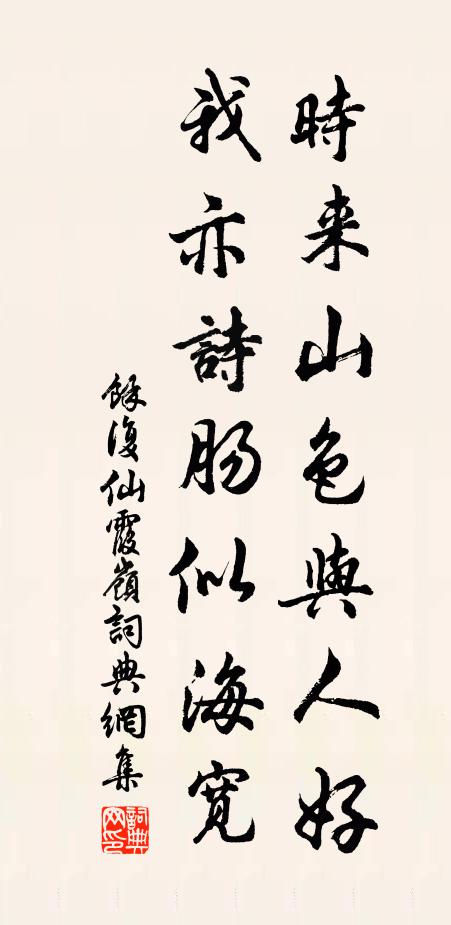 時来山色與人好
我亦詩腸似海寬
餘復仙霞嶺詞典網集
詞典网印